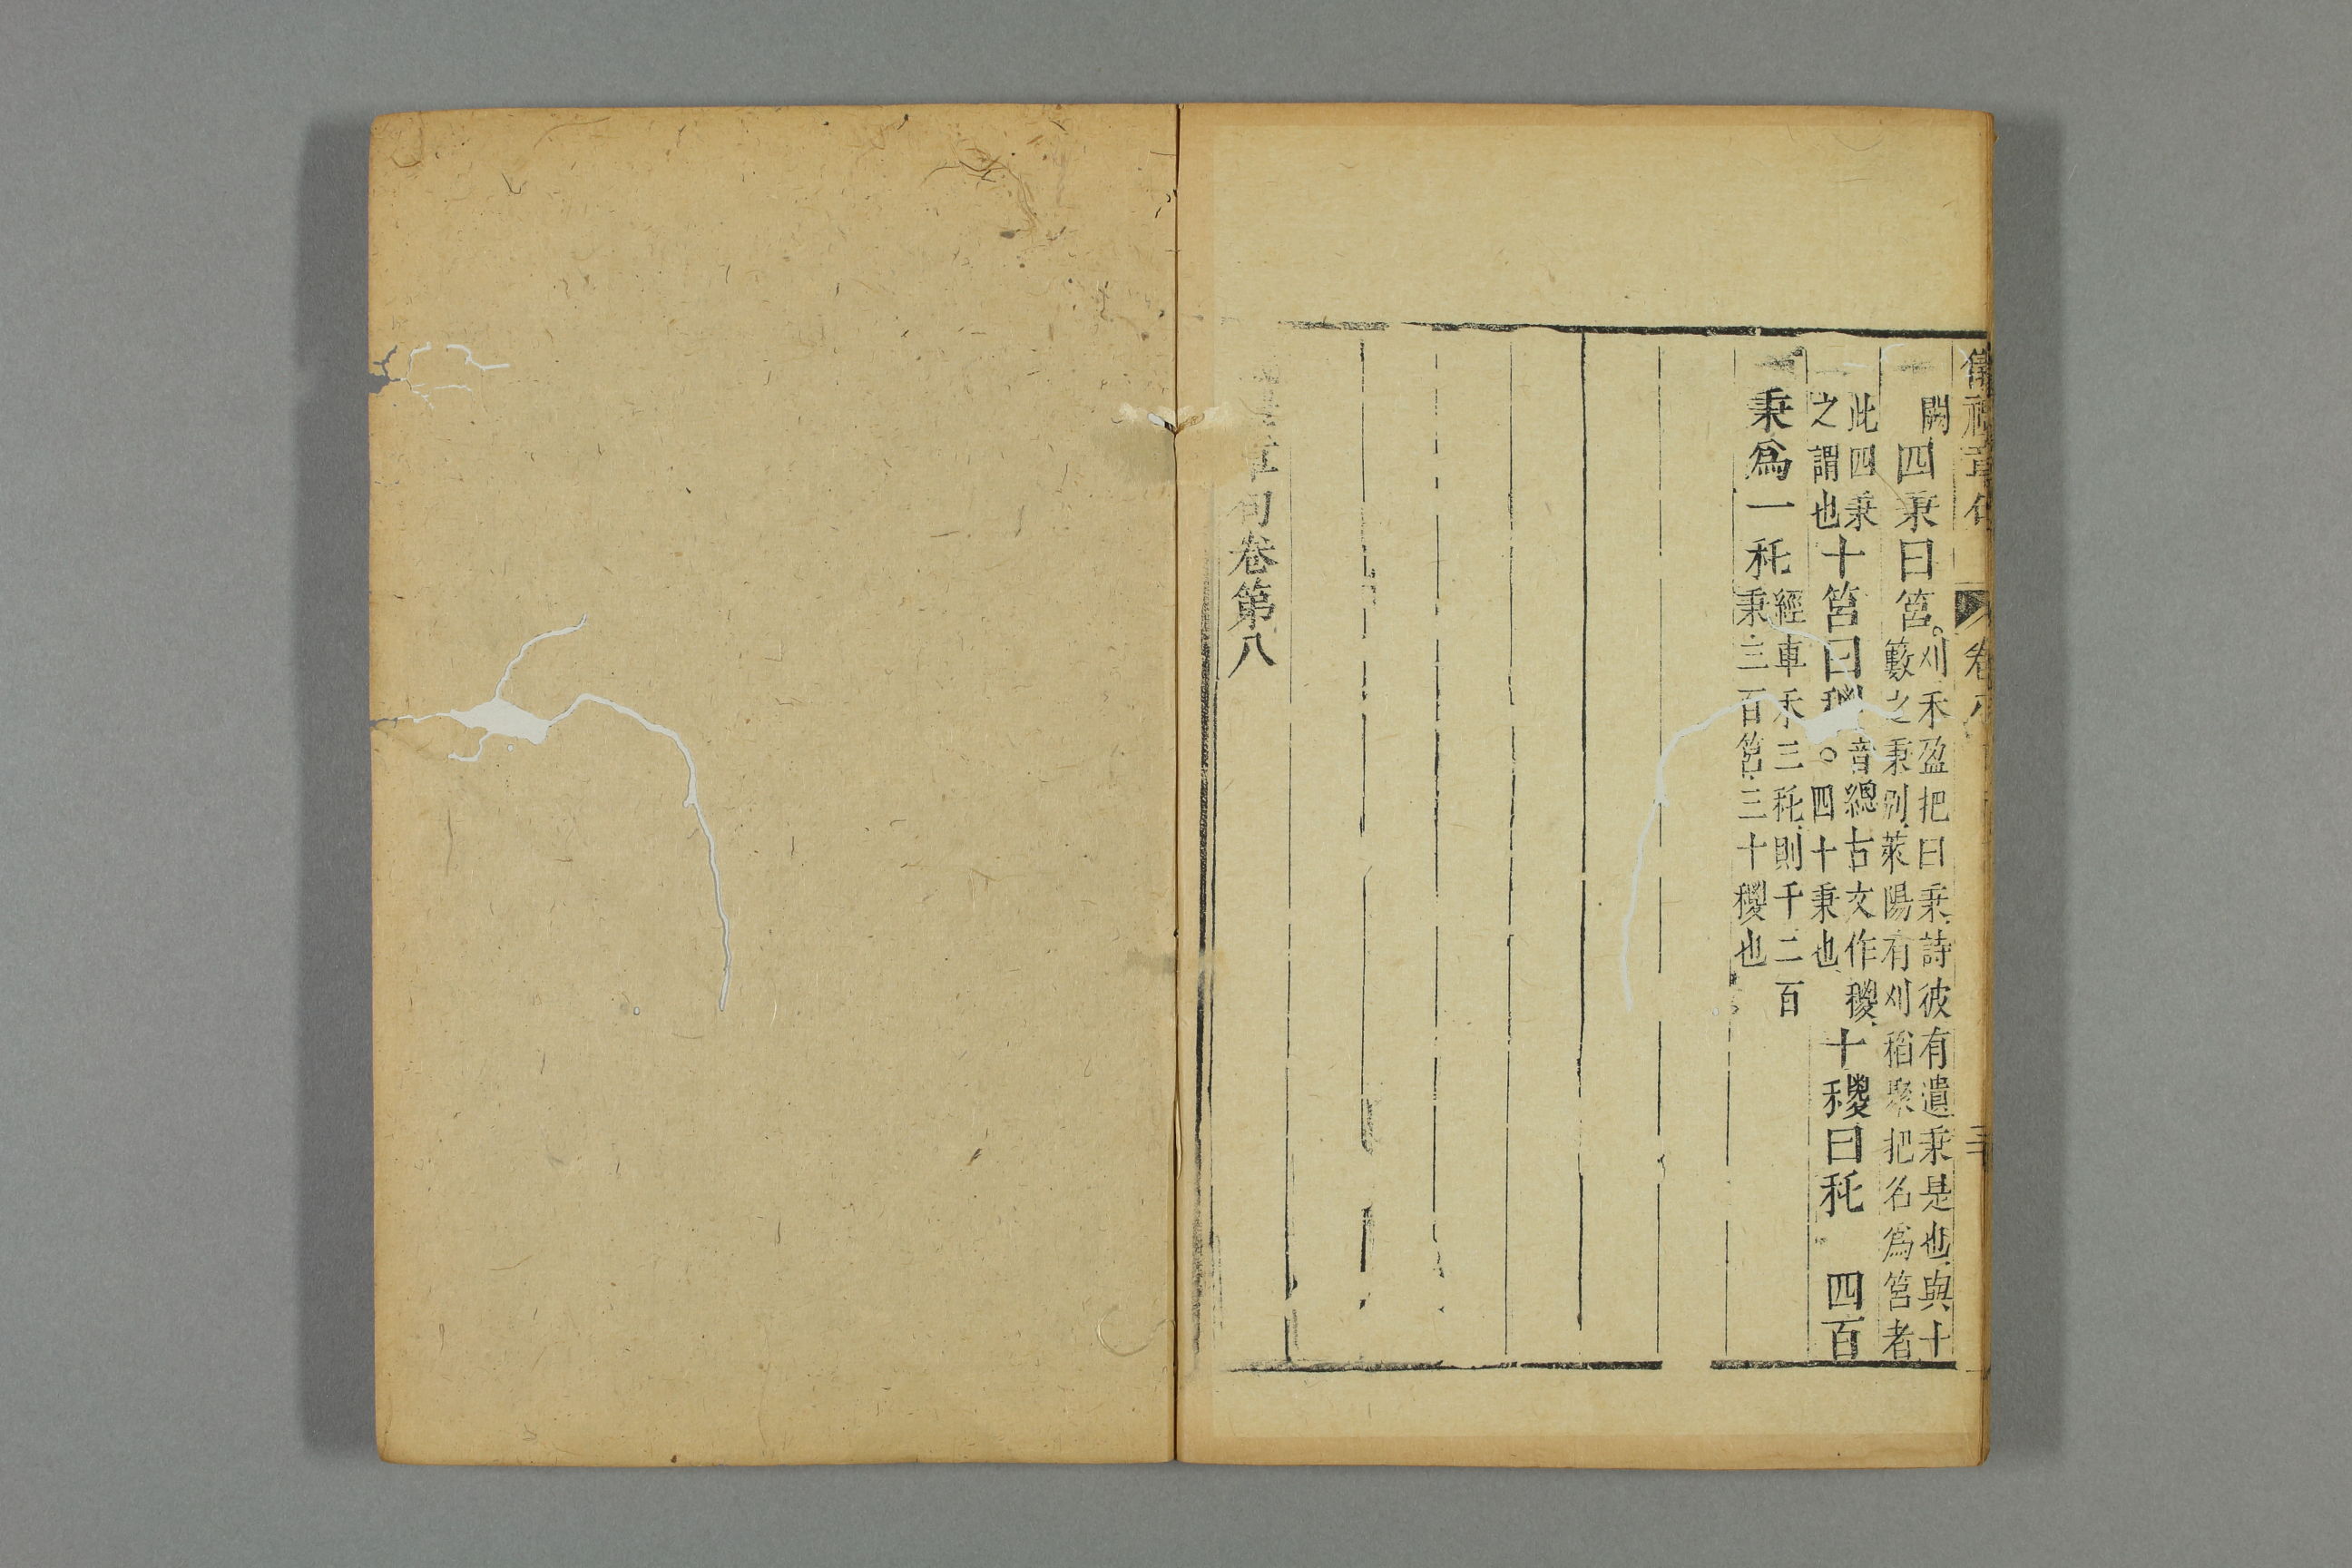 儀禮章句 卷八 三十
闕四秉曰筥。刈禾盈把曰秉、詩彼有遺秉是也、與十
籔之秉別、萊陽有刈稻聚把名爲筥者
此四秉
之謂也十筥曰稯音總古文作稯、
。四十秉也十稯曰秅 四百
秉爲一秅經車禾三秅、則千二百
秉三百筥、三十稯也
章句卷第八